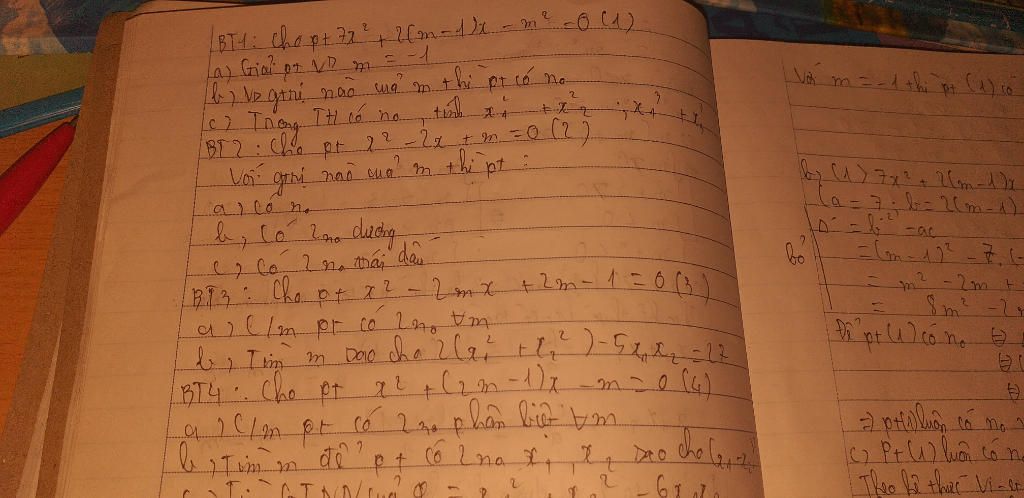 BT1: Cho pt 7x² + 2(m-1)x - m² = 0 (1)
a) Giải pt VD m = -1
b) VD gtrị nào của m thì pt có no
c) Trong TH có no, tính x₁² + x₂² ; x₁³ + x₂³
BT2: Cho pt x² - 2x + m = 0 (2)
Với gtrị nào của m thì pt :
a) có no
b, Có 2 no dương
c, Có 2 no trái dấu
BT3: Cho pt x² - 2mx + 2m - 1 = 0 (3)
a) C/m pt có 2 no ∀m
b, Tìm m sao cho 2(x₁² + x₂²) - 5x₁x₂ = 27
BT4: Cho pt x² + (2m-1)x - m = 0 (4)
a) C/m pt có 2 no phân biệt ∀m
b, Tìm m để pt có 2 no x₁, x₂ sao cho
Với m = -1 thì pt (1) có
b, (1) 7x² + 2(m-1)x
(a = 7 ; b = 2(m-1)
Δ' = b'² - ac
= (m-1)² - 7.(-
bỏ
= m² - 2m +
= 8m² - 2
Để pt (1) có no ⇔
⇔
⇔
⇒ pt(1) luôn có no
c) Pt (1) luôn có no
Theo hệ thức Vi-et